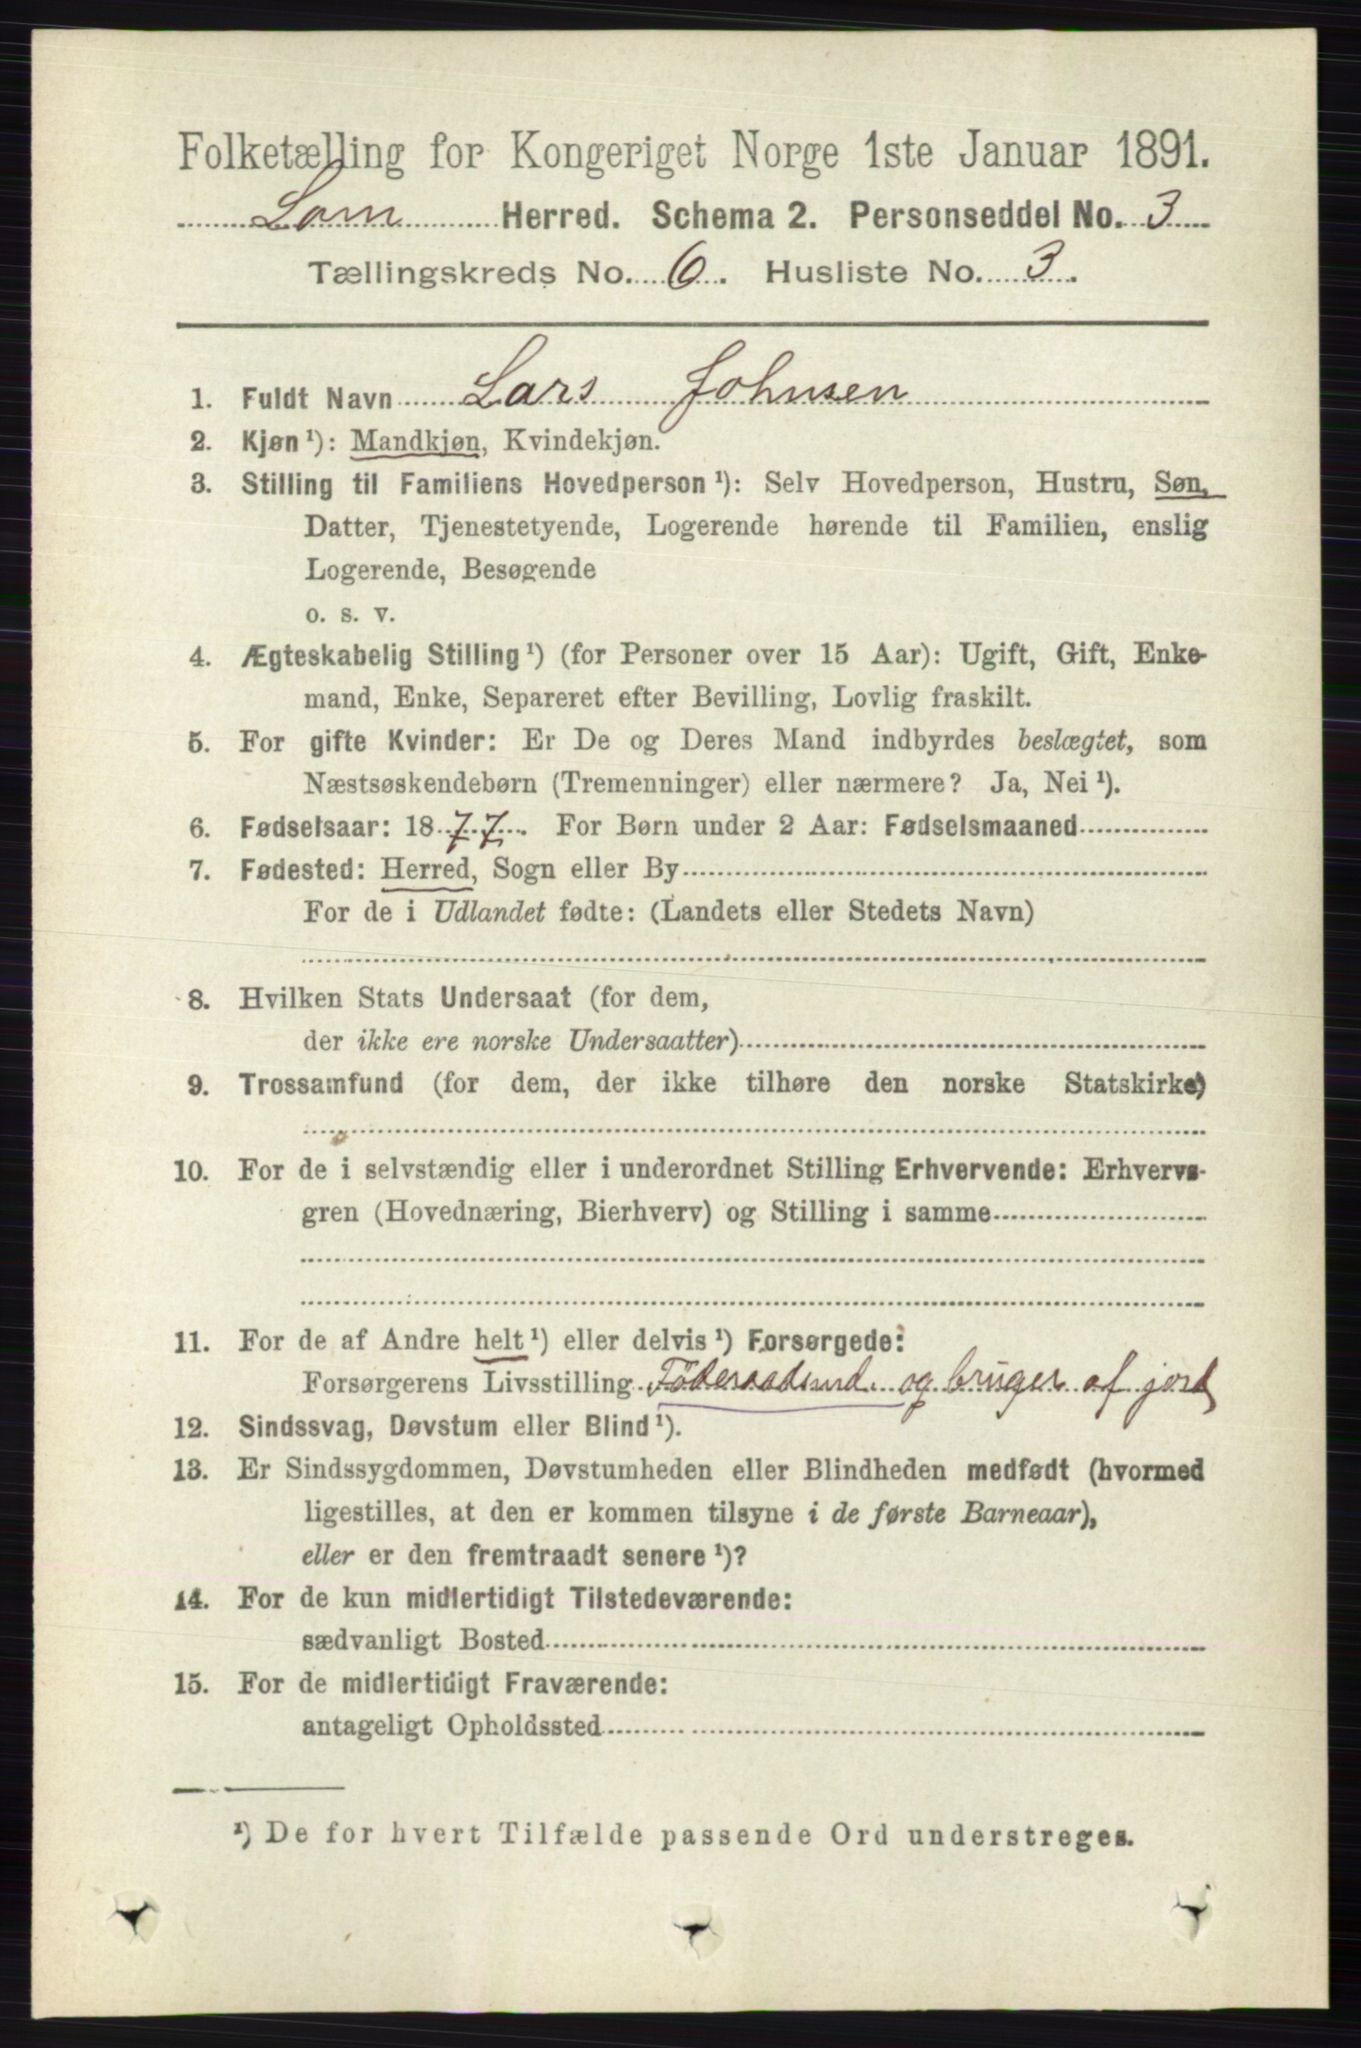 Folketælling for Kongeriget Norge 1ste Januar 1891.
Lom Herred. Schema 2. Personseddel No. 3
Tællingskreds No. 6. Husliste No. 3.
1. Fuldt Navn Lars Johnsen
2. Kjøn ¹): Mandkjøn, Kvindekjøn.
3. Stilling til Familiens Hovedperson ¹): Selv Hovedperson, Hustru, Søn,
Datter, Tjenestetyende, Logerende hørende til Familien, enslig
Logerende, Besøgende
o. s. v.
4. Ægteskabelig Stilling ¹) (for Personer over 15 Aar): Ugift, Gift, Enke-
mand, Enke, Separeret efter Bevilling, Lovlig fraskilt.
5. For gifte Kvinder: Er De og Deres Mand indbyrdes beslægtet, som
Næstsøskendebørn (Tremenninger) eller nærmere? Ja, Nei ¹).
6. Fødselsaar: 1877. For Børn under 2 Aar: Fødselsmaaned
7. Fødested: Herred, Sogn eller By
For de i Udlandet fødte: (Landets eller Stedets Navn)
8. Hvilken Stats Undersaat (for dem,
der ikke ere norske Undersaatter)
9. Trossamfund (for dem, der ikke tilhøre den norske Statskirke)
10. For de i selvstændig eller i underordnet Stilling Erhvervende: Erhvervs-
gren (Hovednæring, Bierhverv) og Stilling i samme
11. For de af Andre helt ¹) eller delvis ¹) Forsørgede:
Forsørgerens Livsstilling Föderaadsmd. og bruger af jord
12. Sindssvag, Døvstum eller Blind ¹).
13. Er Sindssygdommen, Døvstumheden eller Blindheden medfødt (hvormed
ligestilles, at den er kommen tilsyne i de første Barneaar),
eller er den fremtraadt senere ¹)?
14. For de kun midlertidigt Tilstedeværende:
sædvanligt Bosted
15. For de midlertidigt Fraværende:
antageligt Opholdssted
¹) De for hvert Tilfælde passende Ord understreges.